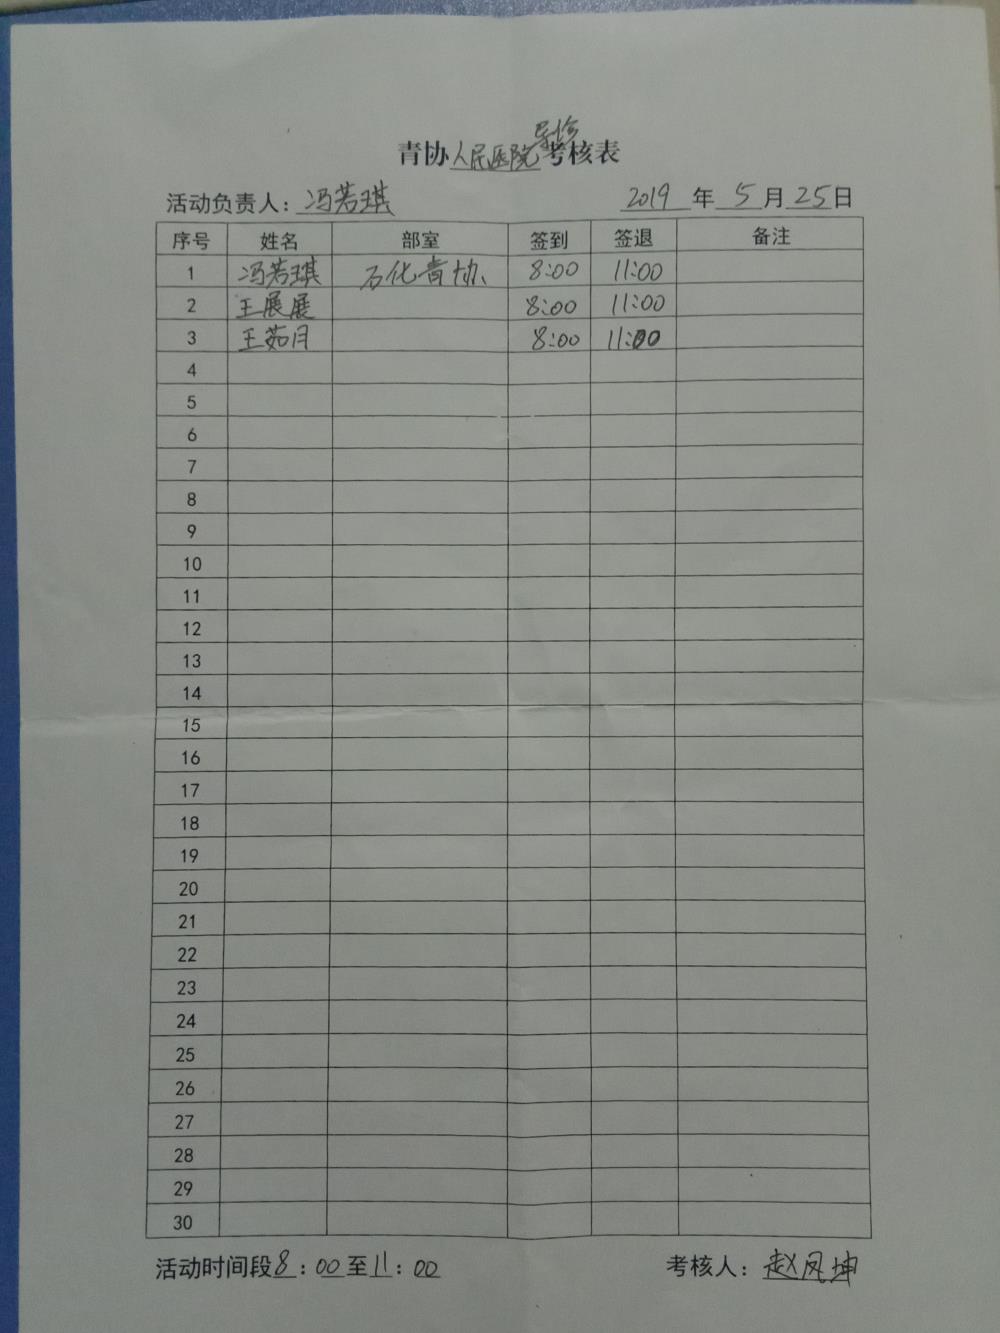 导诊
青协人民医院考核表
活动负责人：冯若琪 2019年5月25日
序号 姓名 部室 签到 签退 备注
1 冯若琪 石化青协 8:00 11:00
2 王展展 8:00 11:00
3 王茹月 8:00 11:00
4
5
6
7
8
9
10
11
12
13
14
15
16
17
18
19
20
21
22
23
24
25
26
27
28
29
30
活动时间段8：00至11：00 考核人：赵凤坤